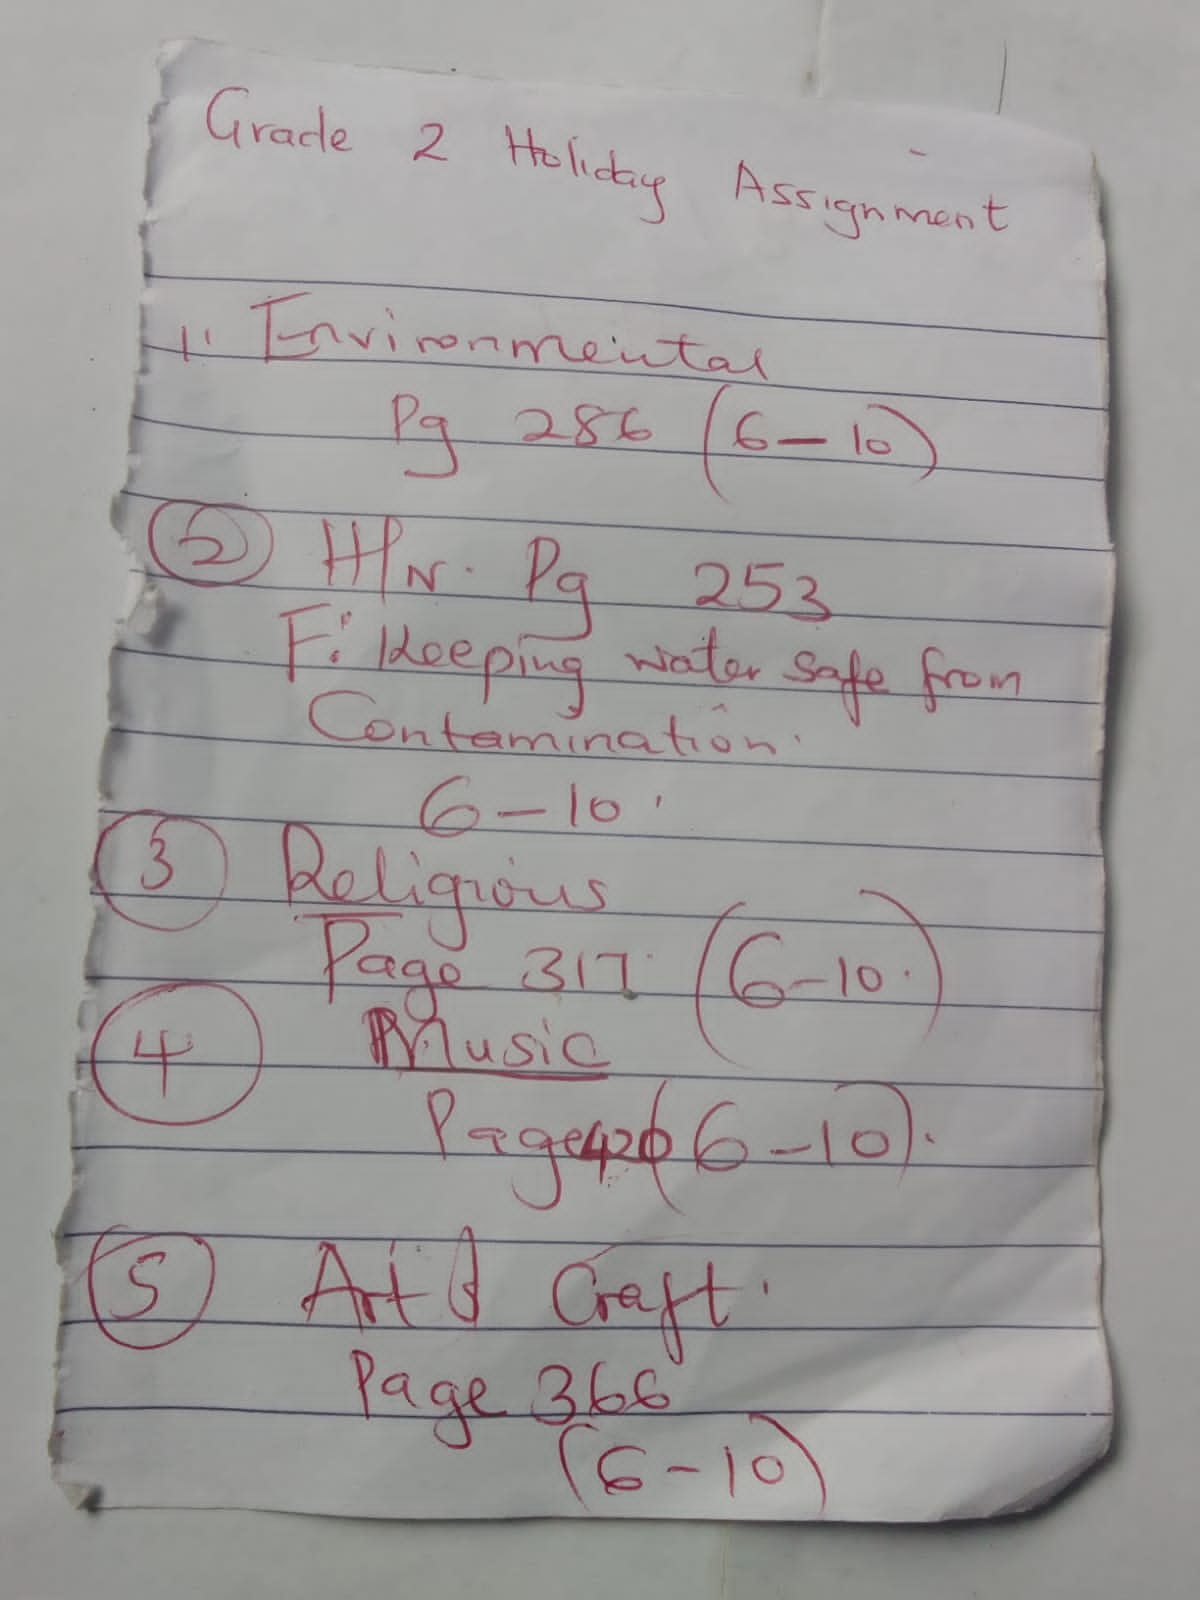 Grade 2 Holiday Assignment
1. Environmental
Pg 286 (6-10)
2 H/N. Pg 253
F: Keeping water safe from
Contamination.
6-10.
3 Religious
Page 317. (6-10.)
4 Music
Page 420 (6-10).
5 Art & Craft.
Page 366
(6-10)